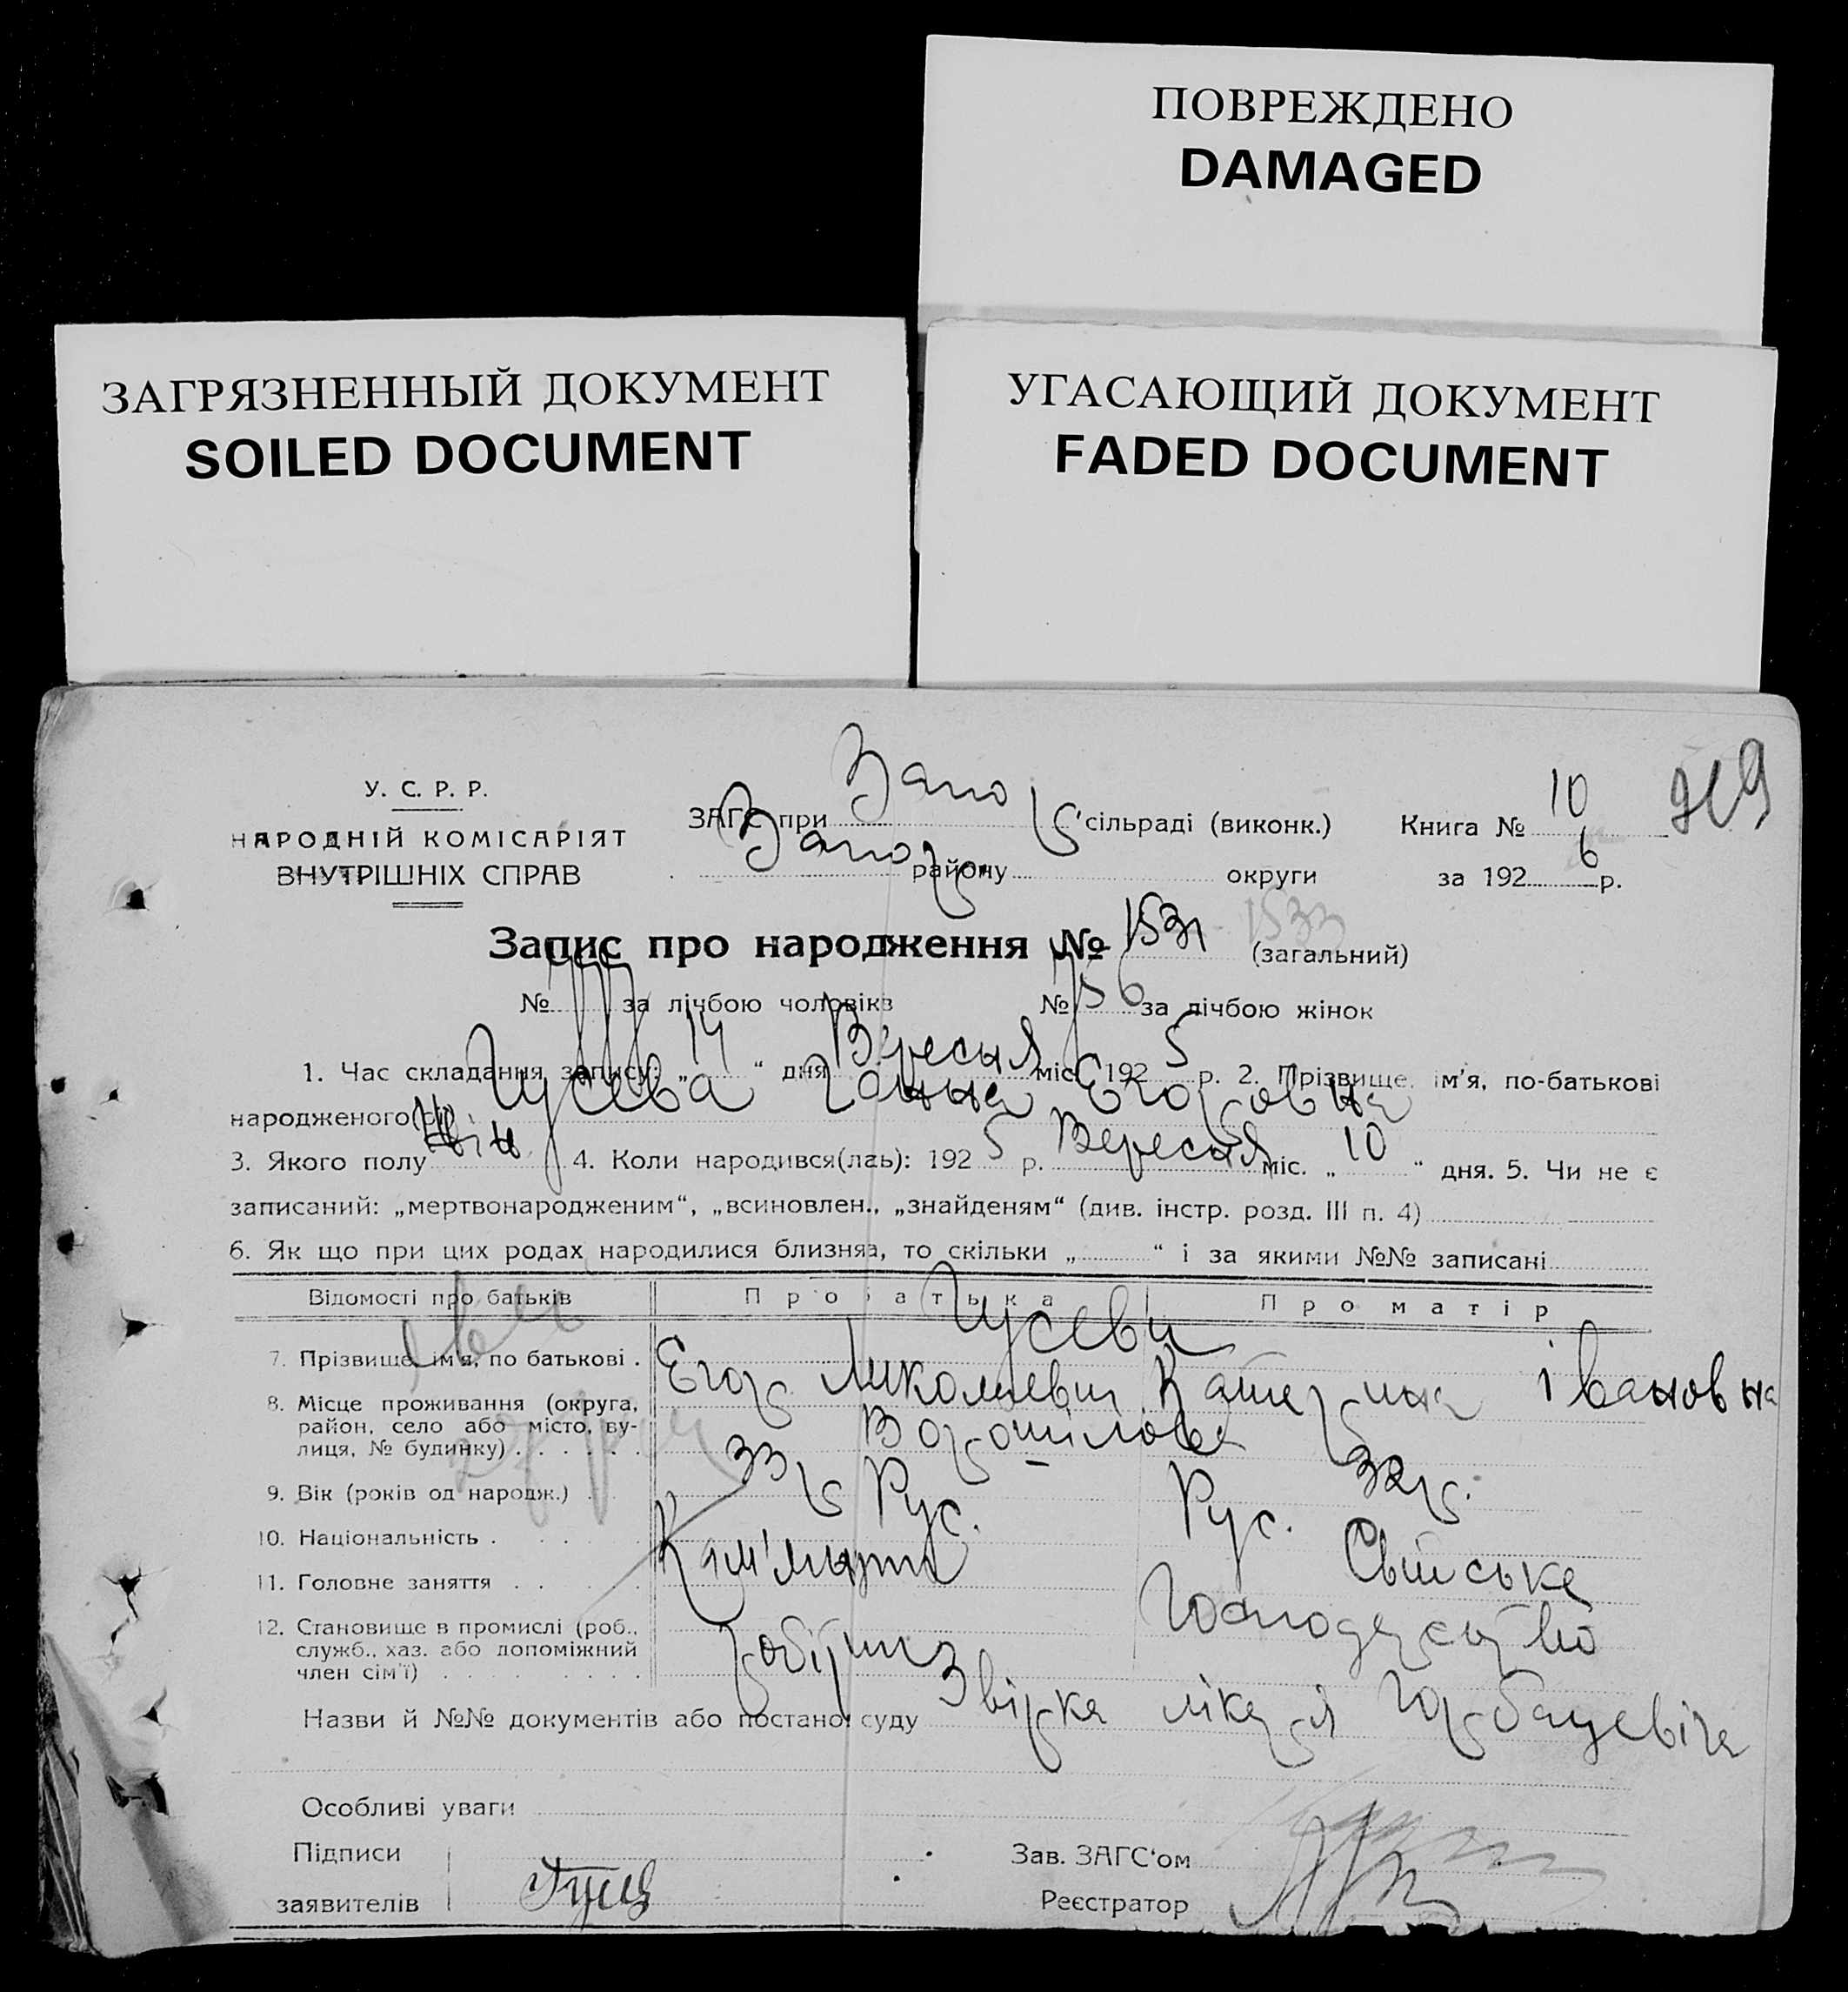 ПОВРЕЖДЕНО
DAMAGED
ЗАГРЯЗНЕННЫЙ ДОКУМЕНТ
SOILED DOCUMENT
УГАСАЮЩИЙ ДОКУМЕНТ
FADED DOCUMENT
У. С. Р. Р.
НАРОДНІЙ КОМІСАРІЯТ
ВНУТРІШНІХ СПРАВ
ЗАГС при Запор сільраді (виконк.)
Запор району округи
Книга № 10
за 1926 р.
Запис про народження № 1531 1533 (загальний)
№ за лічбою чоловіків № 756 за лічбою жінок
1. Час складання запису: „14“ дня Вересня міс. 1925 р. 2. Прізвище, ім'я, по-батькові
народженого(ої) Гусева Ганна Егоровна
3. Якого полу жін. 4. Коли народився(лась): 1925 р. Вересня міс. „10“ дня. 5. Чи не є
записаний: „мертвонародженим“, „всиновлен., „знайденям“ (див. інстр. розд. III п. 4)
6. Як що при цих родах народилися близнята, то скільки „ “ і за якими №№ записані
Відомості про батьків Про батька Про матір
Гусеви
7. Прізвище, ім'я, по батькові . Егор Миколаевич Катерина Івановна
8. Місце проживання (округа,
район, село або місто, ву-
лиця, № будинку) . . . . . . Ворошілова
9. Вік (років од народж.) . 33 р. 32 р.
10. Національність . . . . . Рус. Рус.
11. Головне заняття . . . . . Свійське
Господарство
12. Становище в промислі (роб.,
служб., хаз. або допоміжний
член сім'ї) . . . . . . . . .
Назви й №№ документів або постанов суду Звірка лікаря Горбацевіча
Особливі уваги
Підписи
заявителів
Зав. ЗАГС'ом
Реєстратор